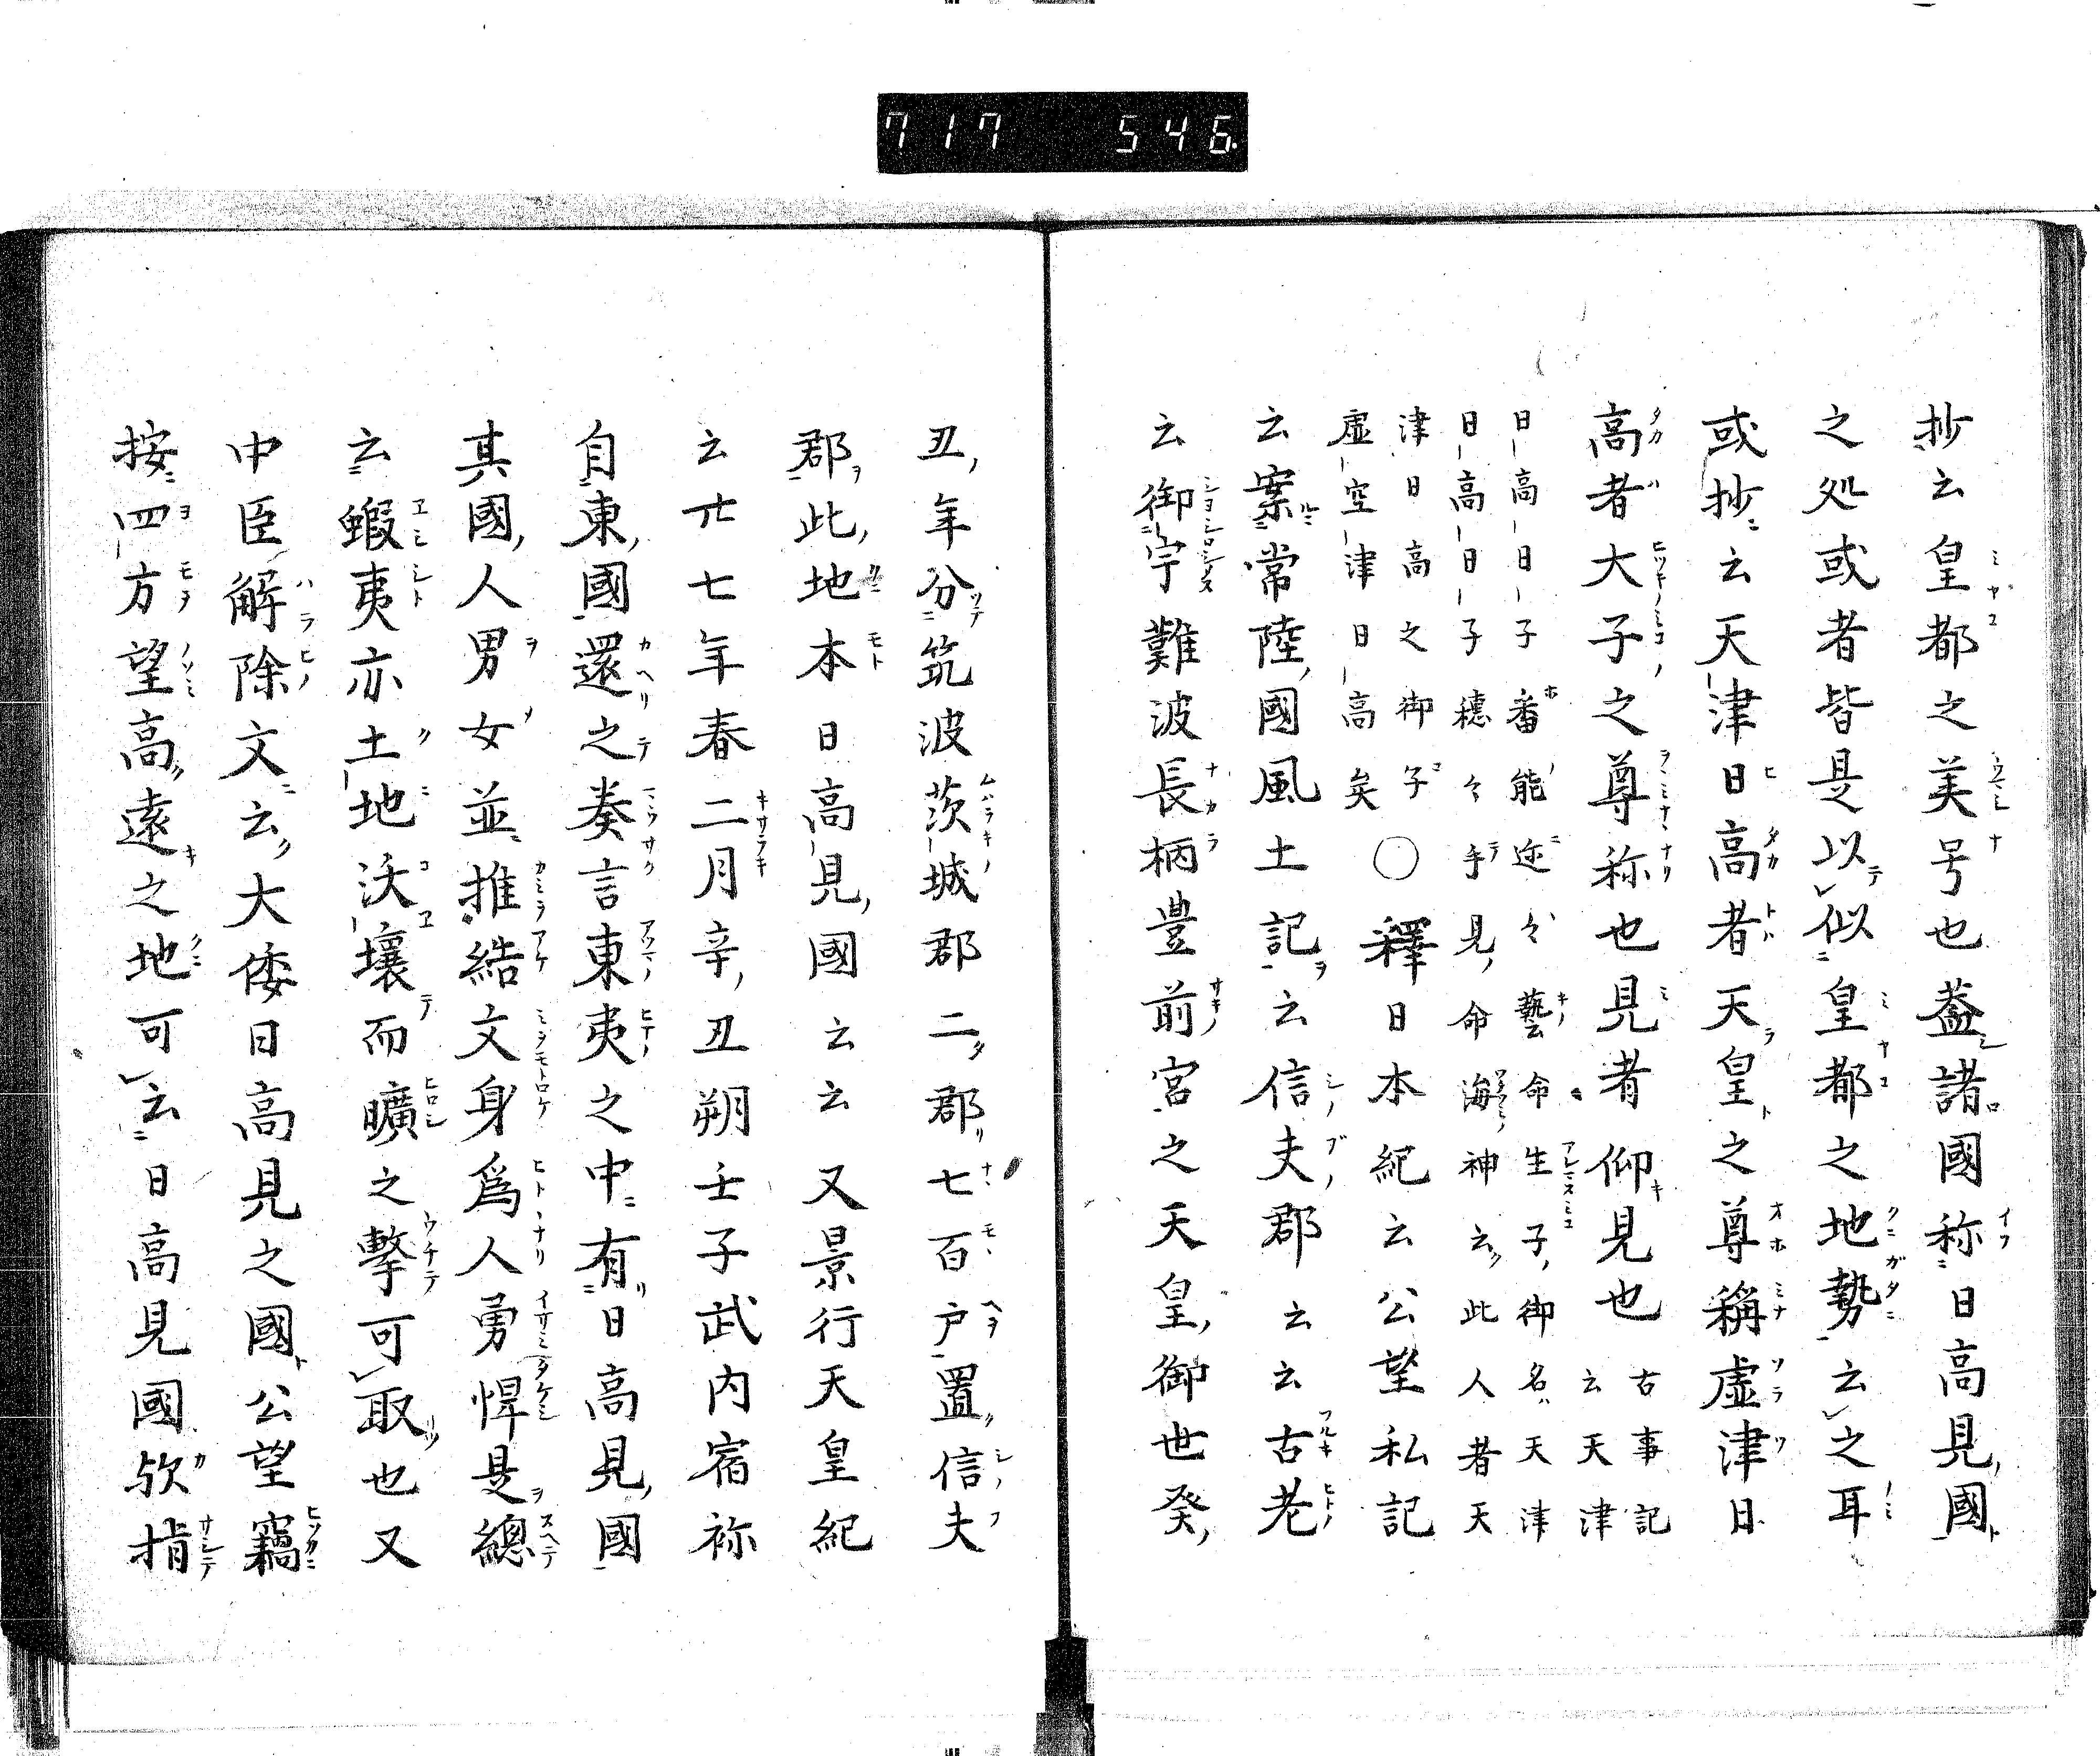 717 546
抄云皇都之美号也蓋諸國称日高見國
之処或者皆是以似皇都之地勢云之耳
或抄云天津日高者天皇之尊稱虚津日
高者大子之尊称也見者仰見也 古事記
云天津
日高日子番能迩々藝命生子御名天津
日高日子穂々手見命海神云此人者天
津日高之御子
虚空津日高矣〇釋日本紀云公望私記
云案常陸國風土記云信夫郡云云古老
云御宇難波長柄豊前宮之天皇御世癸
丑年分筑波茨城郡二郡七百戸置信夫
郡此地本日高見國云云又景行天皇紀
云廿七年春二月辛丑朔壬子武内宿祢
自東國還之奏言東夷之中有日高見國
其國人男女並推結文身爲人勇悍是總
云蝦夷亦土地沃壤而曠之撃可取也又
中臣解除文云大倭日高見之國公望竊
按四方望高遠之地可云日高見國欤指